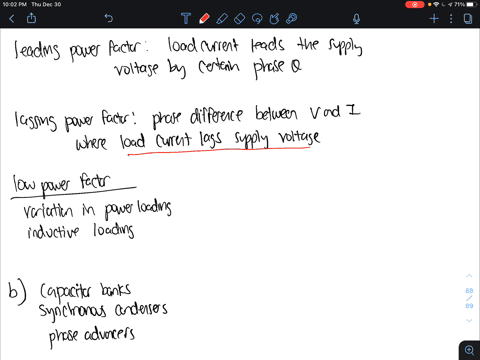 10:02 PM Thu Dec 30
71%
leading power factor: load current leads the supply
voltage by certain phase θ
lagging power factor: phase difference between V and I
where load current lags supply voltage
low power factor
variation in power loading
inductive loading
b) capacitor banks
synchronous condensers
phase advancers
88
89